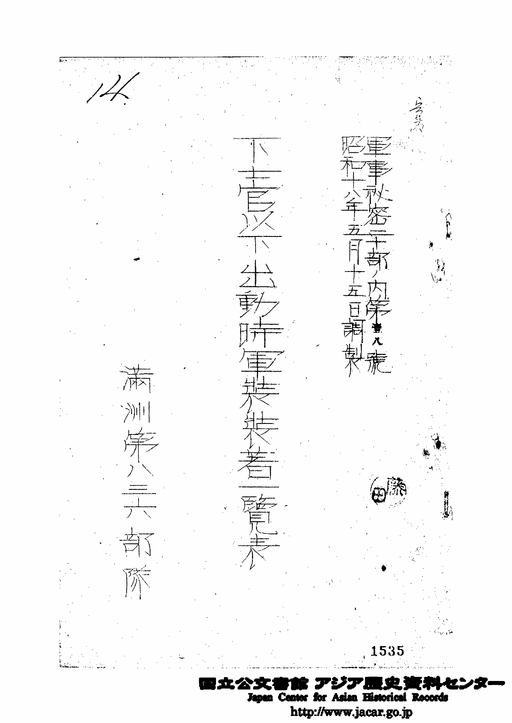 軍事祕密二十部ノ内第壹八號
昭和十八年五月十五日調製
14.
下士官以下出動時軍裝裝着一覽表
滿洲第八三六部隊
1535
国立公文書館 アジア歴史資料センター
Japan Center for Asian Historical Records
http://www.jacar.go.jp